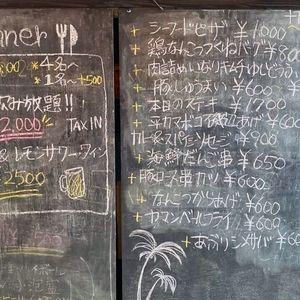 nner
002 *4名~
*1名~ +500
飲み放題!!
2,000 TAX IN
& レモンサワー・ワイン
2500
+ シーフードピザ ¥1000~
+ 鶏なんこつつくねバーグ ¥80
+ 肉詰めいなりキムチゆしどうふ
+ 豚しゅうまい ¥600~
+ 本日のステーキ ¥1700
+ 平カマボコ磯辺あげ ¥
カレー&スパイシーソーセージ ¥900
+ 海鮮だんご串 ¥650
+ 豚ロース串カツ ¥600
+ なんこつからあげ ¥600
+ カマンベールフライ ¥600
+ あぶりシメサバ ¥60